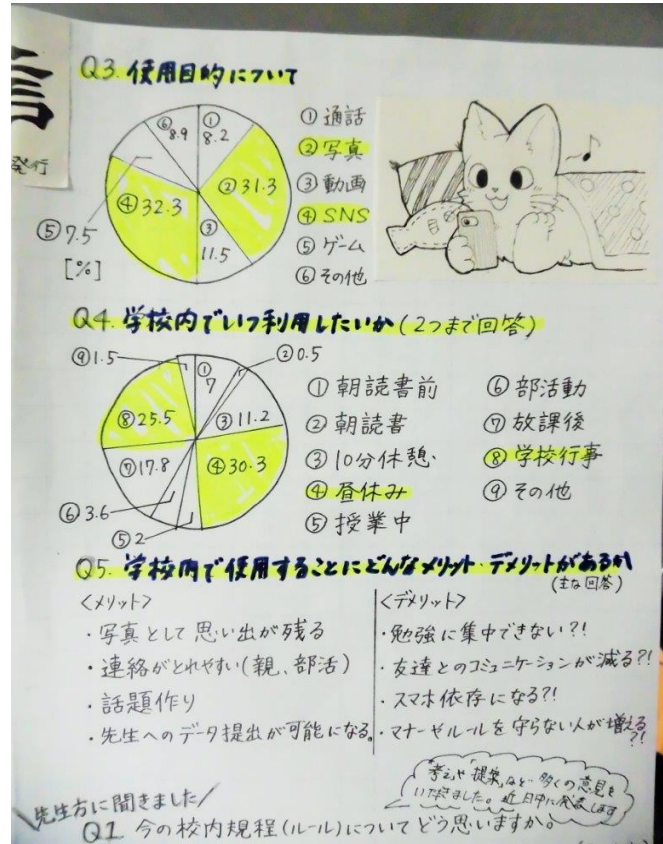 言
発行
Q3. 使用目的について
① 8.2
② 31.3
③ 11.5
④ 32.3
⑤ 7.5
⑥ 8.9
[%]
① 通話
② 写真
③ 動画
④ SNS
⑤ ゲーム
⑥ その他
Q4. 学校内でいつ利用したいか(2つまで回答)
① 7
② 0.5
③ 11.2
④ 30.3
⑤ 2
⑥ 3.6
⑦ 17.8
⑧ 25.5
⑨ 1.5
① 朝読書前
② 朝読書
③ 10分休憩
④ 昼休み
⑤ 授業中
⑥ 部活動
⑦ 放課後
⑧ 学校行事
⑨ その他
Q5. 学校内で使用することにどんなメリット・デメリットがあるか
(主な回答)
<メリット>
・写真として思い出が残る
・連絡がとれやすい(親、部活)
・話題作り
・先生へのデータ提出が可能になる。
<デメリット>
・勉強に集中できない?!
・友達とのコミュニケーションが減る?!
・スマホ依存になる?!
・マナーやルールを守らない人が増える?!
考えや提案など多くの意見を
いただきました。近日中に発表します
\先生方に聞きました/
Q1 今の校内規程(ルール)についてどう思いますか。